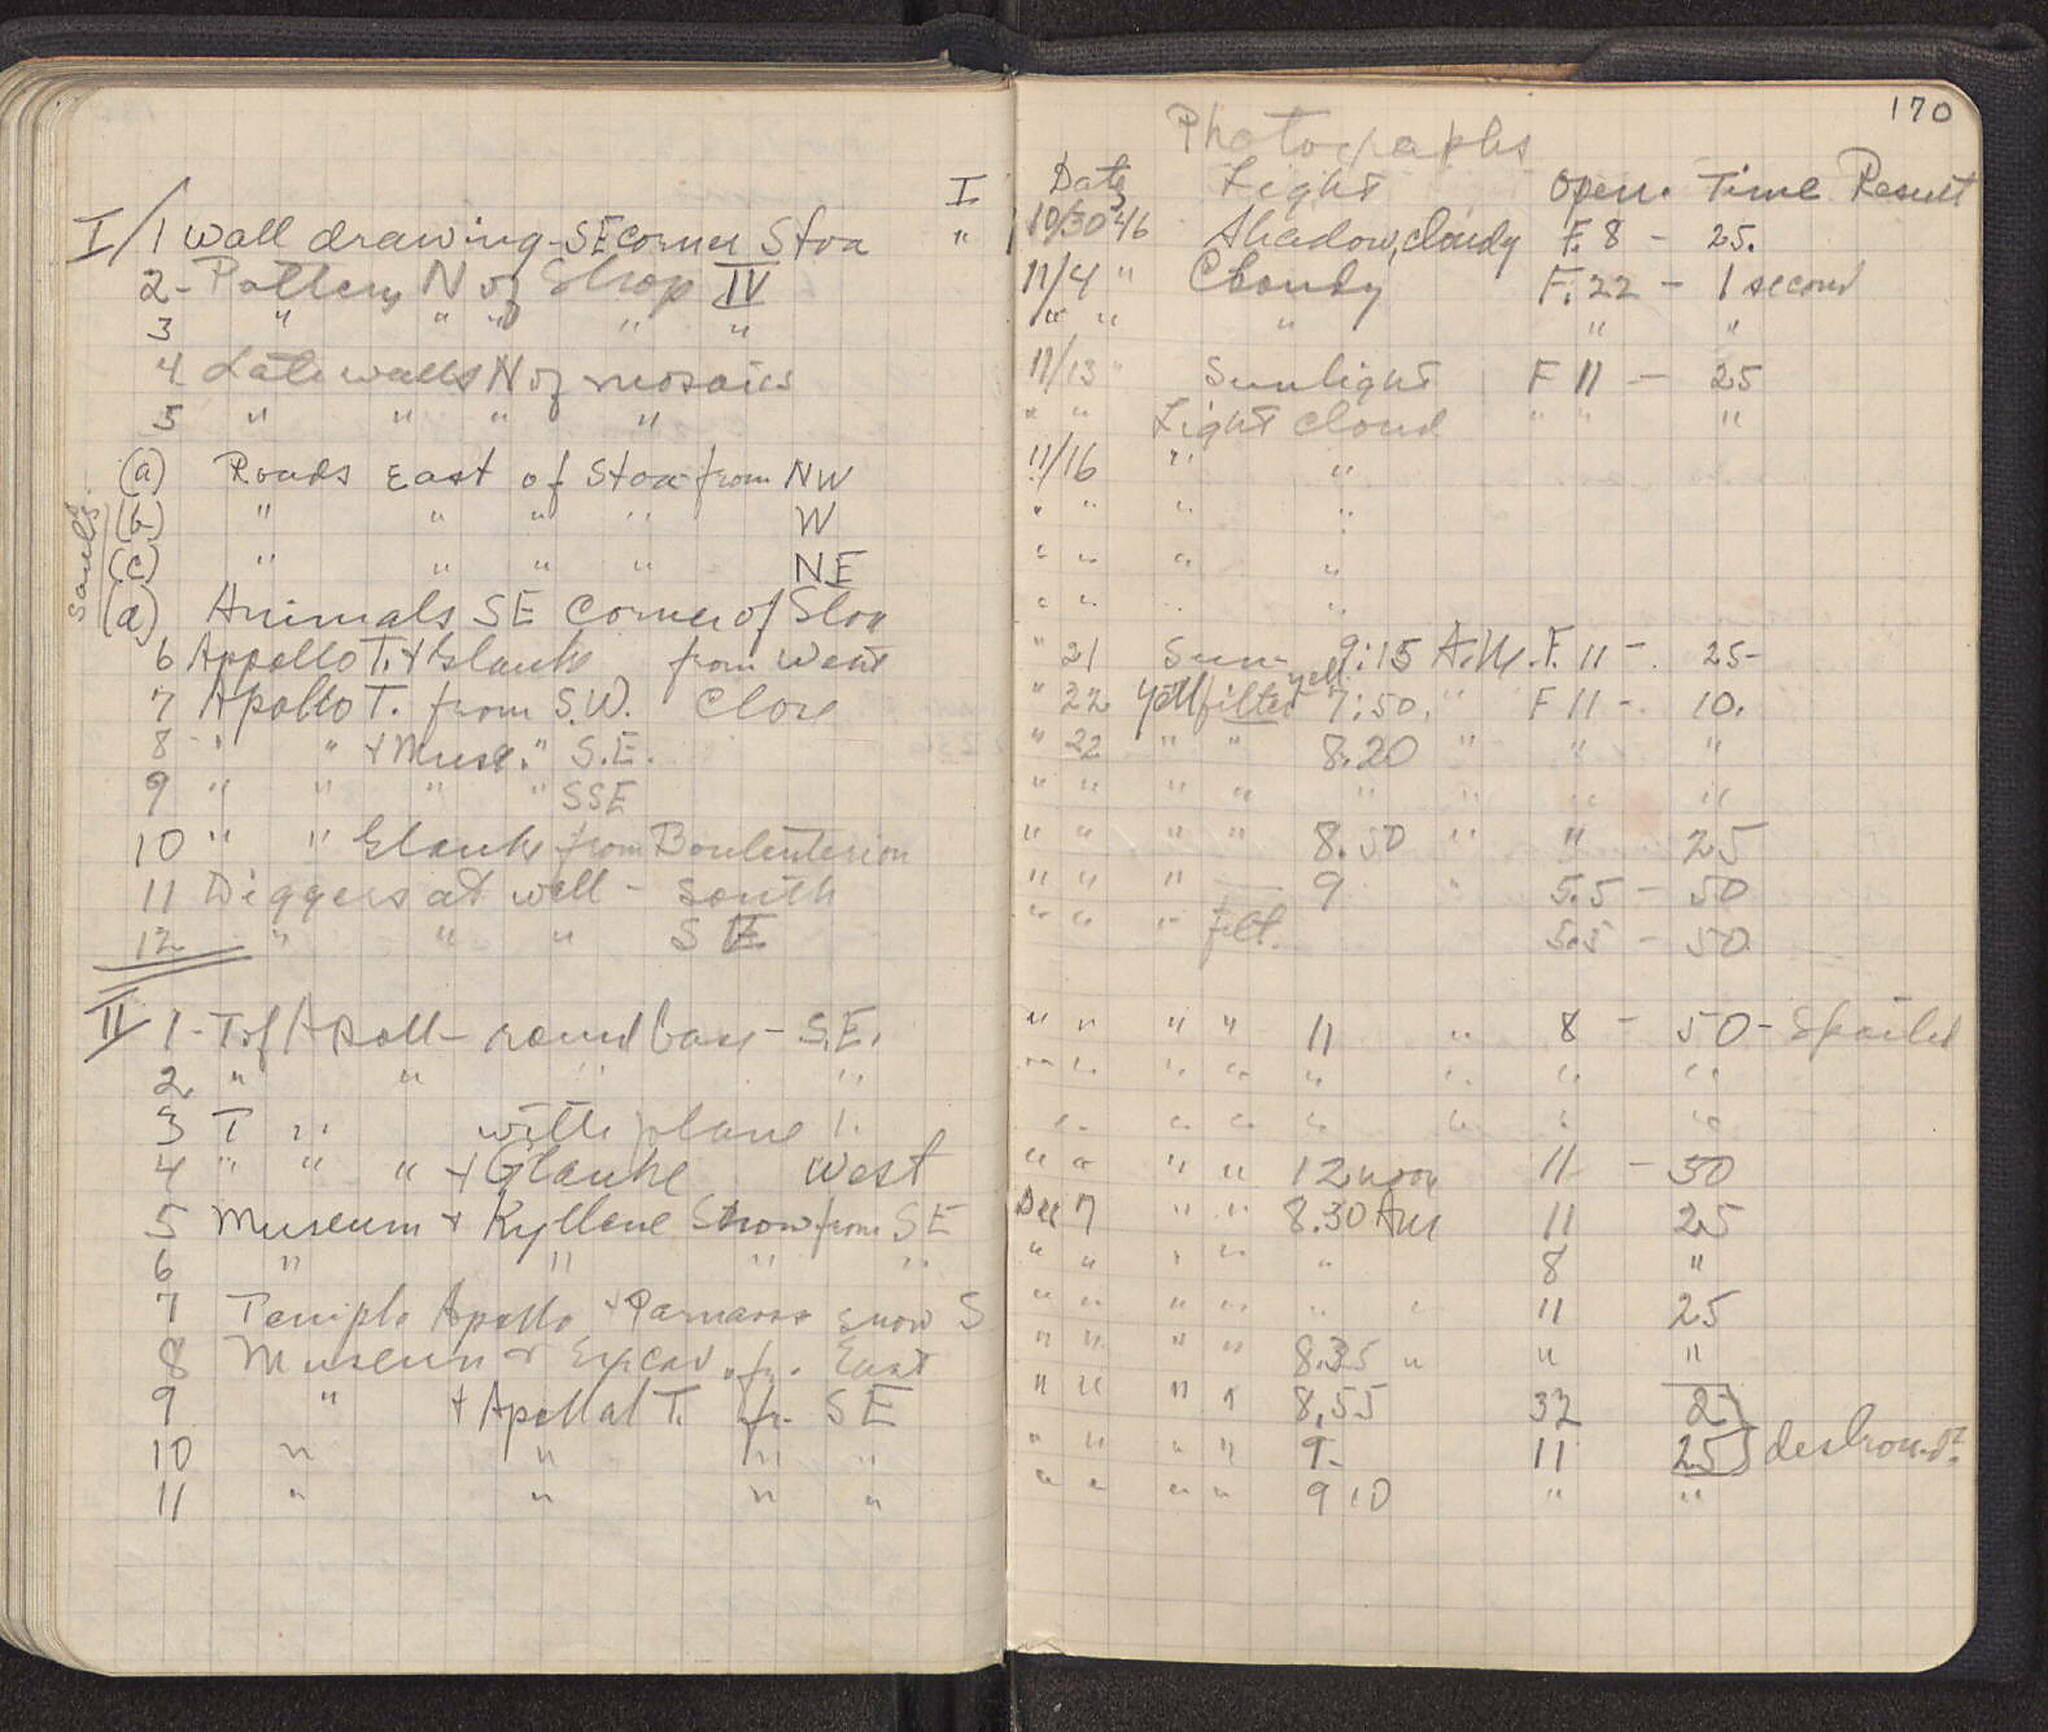 I
I/1 Wall drawing - SE corner Stoa "
2- Pottery N of Shop IV
3 " " " " "
4 Late walls N of mosaics
5 " " " "
(a) Roads East of Stoa from NW
(b) " " " " W
(c) " " " " NE
(d) Animals SE Corner of Stoa
6 Appollo T. + Glauke from West
7 Apollo T. from S.W. Close
8 " " + Mus. " S.E.
9 " " " " SSE
10 " " Glauke from Bouleuterion
11 Diggers at well - South
12 " " " S E
II 1- T of Apoll - round base - S.E.
2 " " " "
3 T " with plane
4 " " " + Glauke West
5 Museum + Kyllene Snow from SE
6 " " " "
7 Temple Apollo + Parnass snow S
8 Museum + Excav. fr. East
9 " + Apollo T. fr. SE
10 " " " "
11 " " " "
170
Photographs
Date Light Open. Time Result
10/30 46 Shadow, cloudy F. 8 - 25.
11/4 " Cloudy F. 22 - 1 second
" " " " "
11/13 " Sunlight F 11 - 25
" " Light cloud " " "
11/16 " "
" " " "
" " " "
" " " "
" 21 Sun 9:15 A.M. F. 11 - 25-
" 22 Yell filter 7:50. " F 11 - 10.
" 22 " " 8.20 " " "
" " " " " " " "
" " " " 8.50 " " 25
" " " — 9 " 5.5 - 50
" " " filt. 5.5 - 50
" " " " 11 " 8 - 50 - Spoiled
" " " " " " " "
" " " " " " "
" " " " 12 noon 11 - 50
Dec 7 " " 8.30 Am 11 25
" " " " " 8 "
" " " " " " 11 25
" " " " 8.35 " " "
" " " " 8.55 32 2
" " " " 9- 11 25
" " " " 9 10 " "